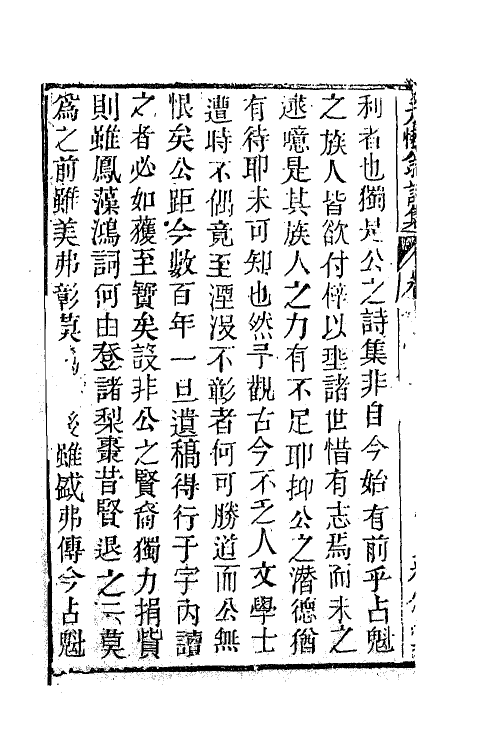 利者也獨是公之詩集非自今始有前乎占魁
之族人皆欲付梓以垂諸世惜有志焉而未之
逮噫是其族人之力有不足耶抑公之潛德猶
有待耶未可知也然予觀古今不乏人文學士
遭時不偶竟至湮沒不彰者何可勝道而公無
恨矣公距今數百年一旦遺稿得行于宇內讀
之者必如獲至寶矣設非公之賢裔獨力捐貲
則雖鳳藻鴻詞何由登諸梨棗昔賢退之云莫
爲之前雖美弗彰莫爲 雖盛弗傳今占魁